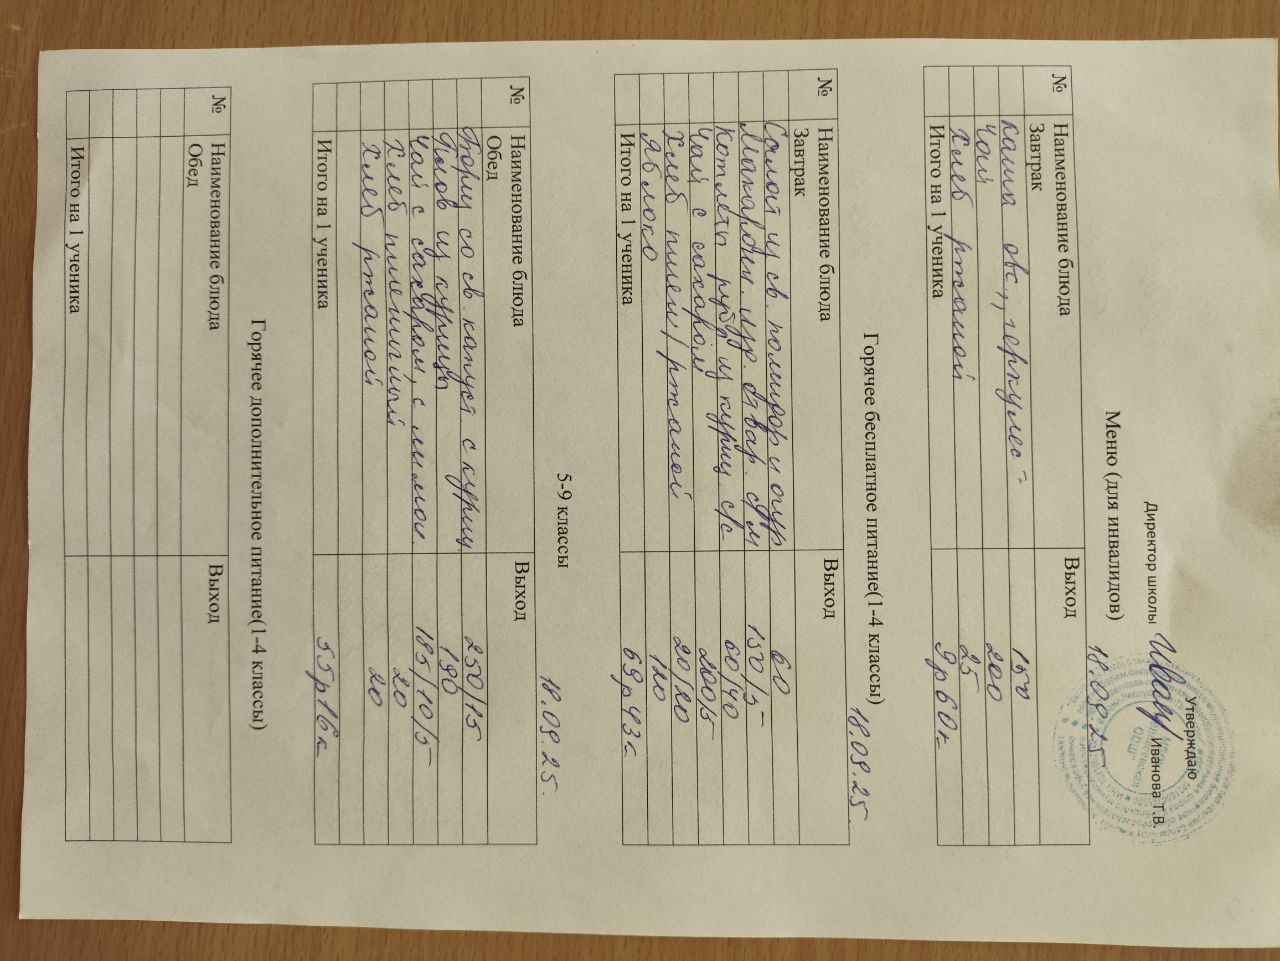 Утверждаю
Директор школы Иванова Т.В.
18.09.25
Меню (для инвалидов)
№ Наименование блюда Выход
Завтрак
каша овс. "геркулес" 150
Чай 200
Хлеб ржаной 25
Итого на 1 ученика 9р60к
Горячее бесплатное питание(1-4 классы)
18.09.25.
№ Наименование блюда Выход
Завтрак
Салат из св. помидор и огур 60
Макарон. изд. отвар. с/м 150/5
Котлеты руб. из куриц с/с 60/40
Чай с сахаром 200/5
Хлеб пшен/ржаной 20/20
Яблоко 120
Итого на 1 ученика 69р43
5-9 классы
18.09.25.
№ Наименование блюда Выход
Обед
Борщ со св. капуст с куриц. 250/15
Плов из курицы 190
Чай с сахаром, с лимон 185/10/5
Хлеб пшеничный 20
Хлеб ржаной 20
Итого на 1 ученика 55р16к
Горячее дополнительное питание(1-4 классы)
№ Наименование блюда Выход
Обед
Итого на 1 ученика